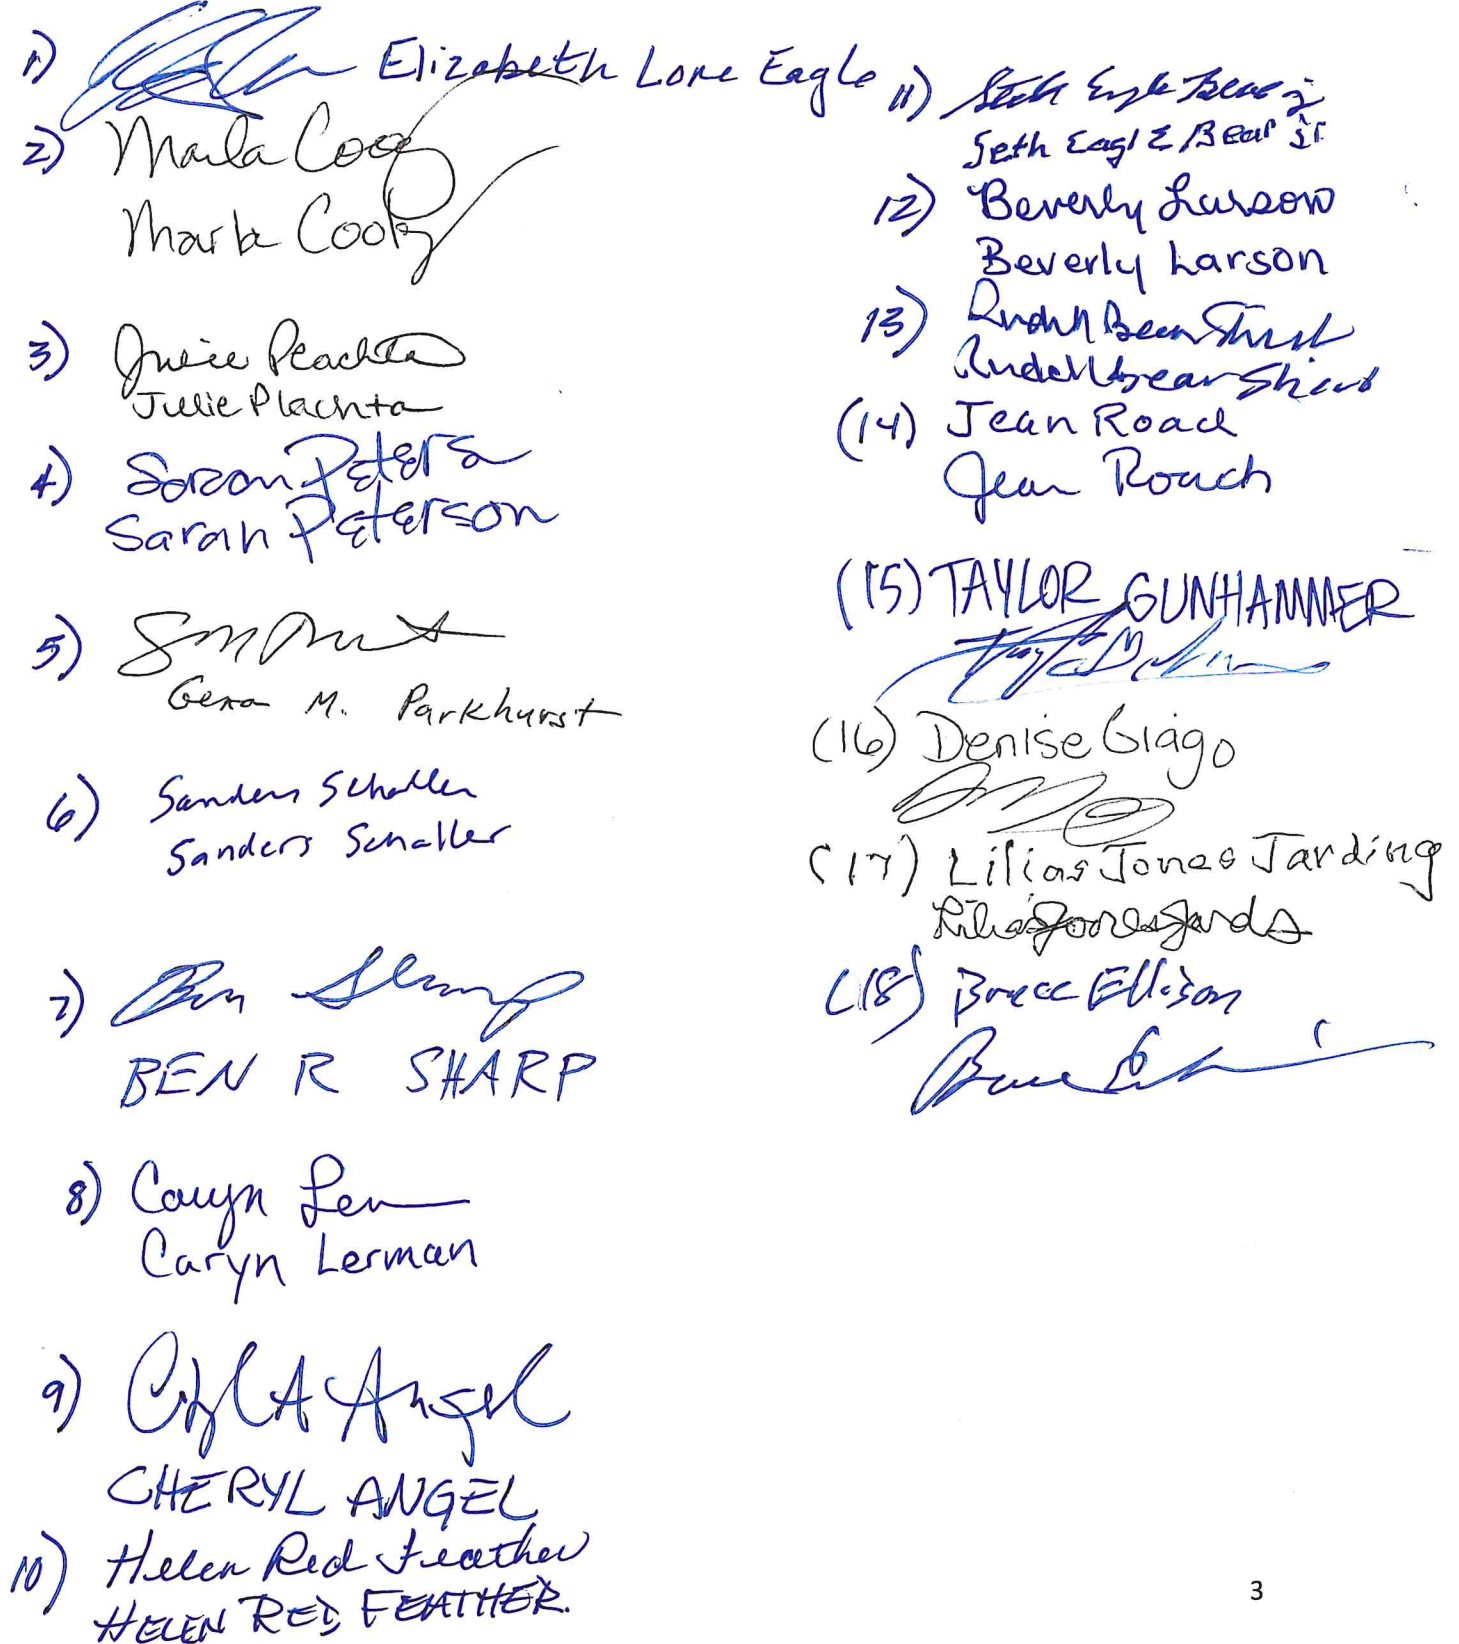 1) Elizabeth Lone Eagle
2) Marla Cooly
Marla Cooly
3) Julie Plachta
Julie Plachta
4) Sarah Peters
Sarah Peterson
5)
Gena M. Parkhurst
6) Sanders Schaller
Sanders Schaller
7) Ben Sharp
BEN R SHARP
8) Caryn Ler
Caryn Lerman
9) Cheryl A Angel
CHERYL ANGEL
10) Helen Red Feather
HELEN RED FEATHER.
11) Seth Eagle Bear Jr
Seth Eagle Bear Jr
12) Beverly Larson
Beverly Larson
13) Rudell Bear Shirt
Rudell Bear Shirt
(14) Jean Roach
Jean Roach
(15) TAYLOR GUNHAMMER
(16) Denise Giago
(17) Lilias Jones Jarding
Lilias Jones Jarding
(18) Bruce Ellison
Bruce Ellison
3